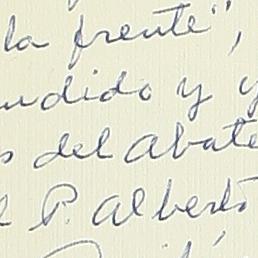 la frente",
udido y y
s del abate
l P. Alberto